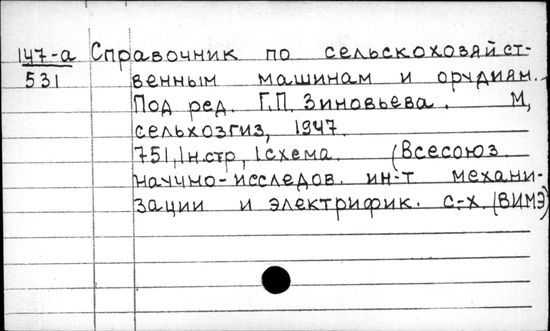 147-а Справочник по сельскохозяйст-
531 венным машинам и орудиям.
Под ред. Г.П. Зиновьева. М,
сельхозгиз, 1947.
751, 1 н.стр, 1 схема. (Всесоюз.
научно-исследов. ин-т механи-
зации и электрифик. с.-х. (ВИМЭ)